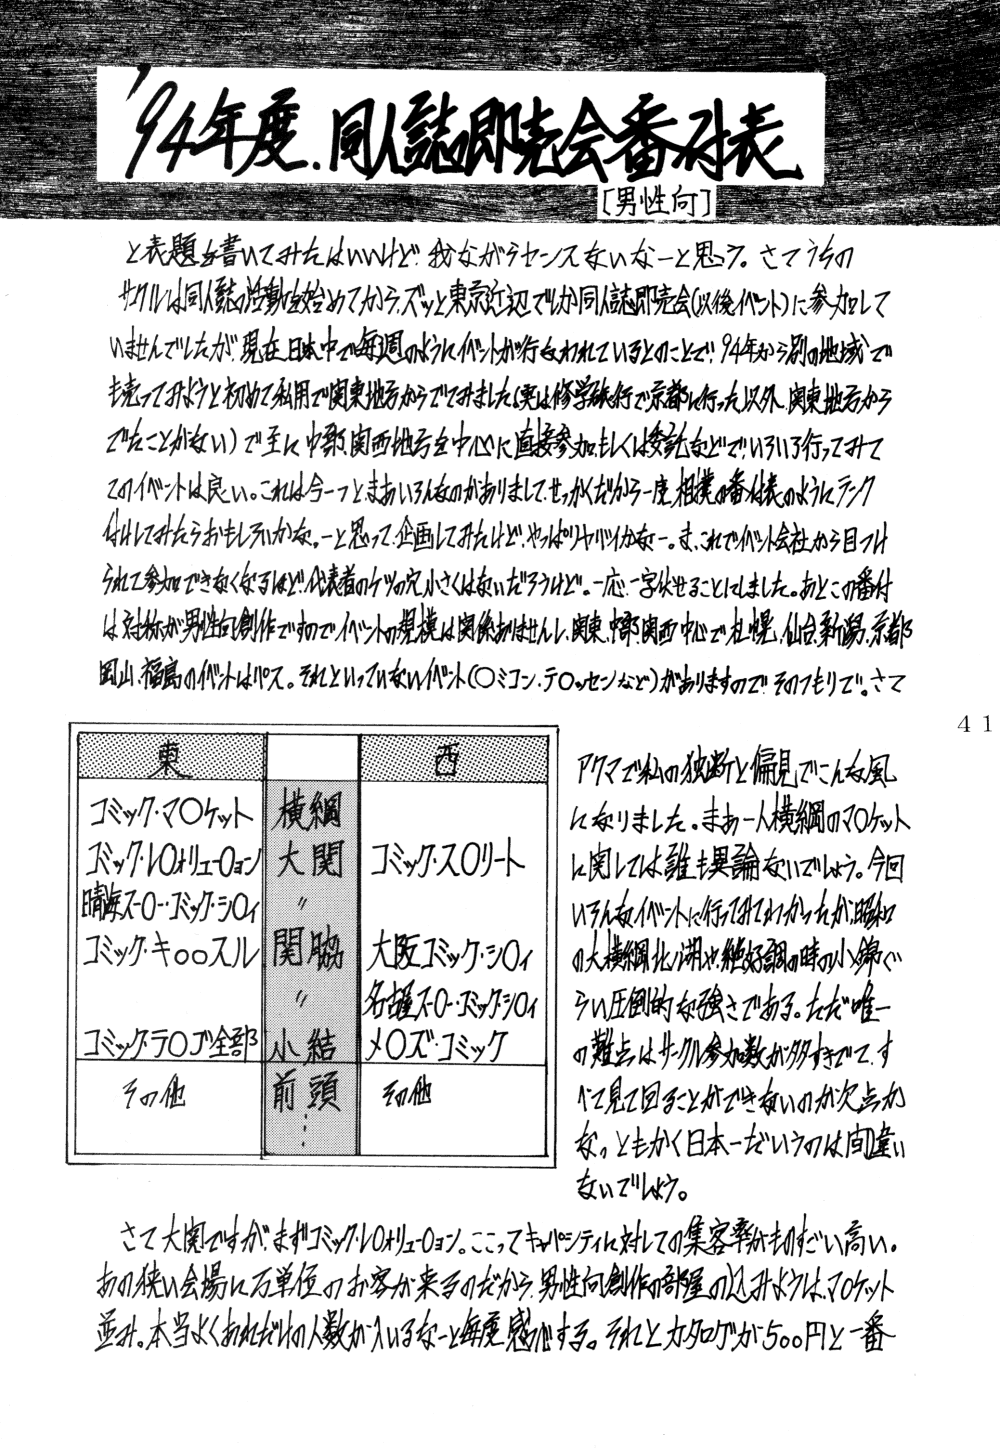 '94年度.同人誌即売会番付表
[男性向]
と表題を書いてみたはいいけど我ながらセンスないなーと思う。さてうちの
サークルは同人誌の活動を始めてから、ズッと東京近辺でしか同人誌即売会(以後イベント)に参加して
いませんでしたが、現在、日本中で毎週のようにイベントが行なわれているとのことで、94年から別の地域で
も売ってみようと初めて私用で関東地方からでてみました(実は修学旅行で京都に行った以外、関東地方から
でたことがない)で主に中部、関西地方を中心に直接参加、もしくは委託などでいろいろ行ってみて
このイベントは良い。これは今一つとまあいろんなのがありまして、せっかくだから一度、相撲の番付表のようにランク
付けしてみたらおもしろいかな。ーと思って、企画してみたけど、やっぱりヤバイかなー。ま、これでイベント会社から目つけ
られて参加できなくなるほど、代表者のケツの穴小さくはないだろうけど。一応、一字伏せることにしました。あとこの番付
は対称が男性向創作ですのでイベントの規模は関係ありませんし、関東、中部、関西中心で札幌、仙台、新潟、京都
岡山、福島のイベントはパス。それといっていないイベント(○ミコン、テ○ッセンなど)がありますので、そのつもりで。さて
41
東 西
コミック・マ○ケット 横綱
コミック・レ○ォリュー○ョン 大関 コミック・ス○リート
晴海スー○ー・コミック・シ○ィ 〃
コミック・キ○○スル 関脇 大阪コミック・シ○ィ
〃 名古屋スー○ー・コミック・シ○ィ
コミック・テ○ブ全部 小結 メ○ズ・コミック
その他 前頭 その他
アクマで私の独断と偏見でこんな風
になりました。まあ一人横綱のマ○ケット
に関しては誰も異論ないでしょう。今回
いろんなイベントに行ってみてわかったが、昭和
の大横綱北ノ湖や、絶好調の時の小錦ぐ
らい圧倒的な強さである。ただ唯一
の難点はサークル参加数が多すぎて、す
べて見て回ることができないのが欠点か
な。ともかく日本一だというのは間違い
ないでしょう。
さて大関ですが、まずコミック・レ○ォリュー○ョン。ここってキャパシティに対しての集客率がものすごい高い。
あの狭い会場に万単位のお客が来るのだから、男性向創作の部屋の込みようは、マ○ケット
並み。本当よくあれだけの人数が入いるなーと毎度感心する。それとカタログが500円と一番